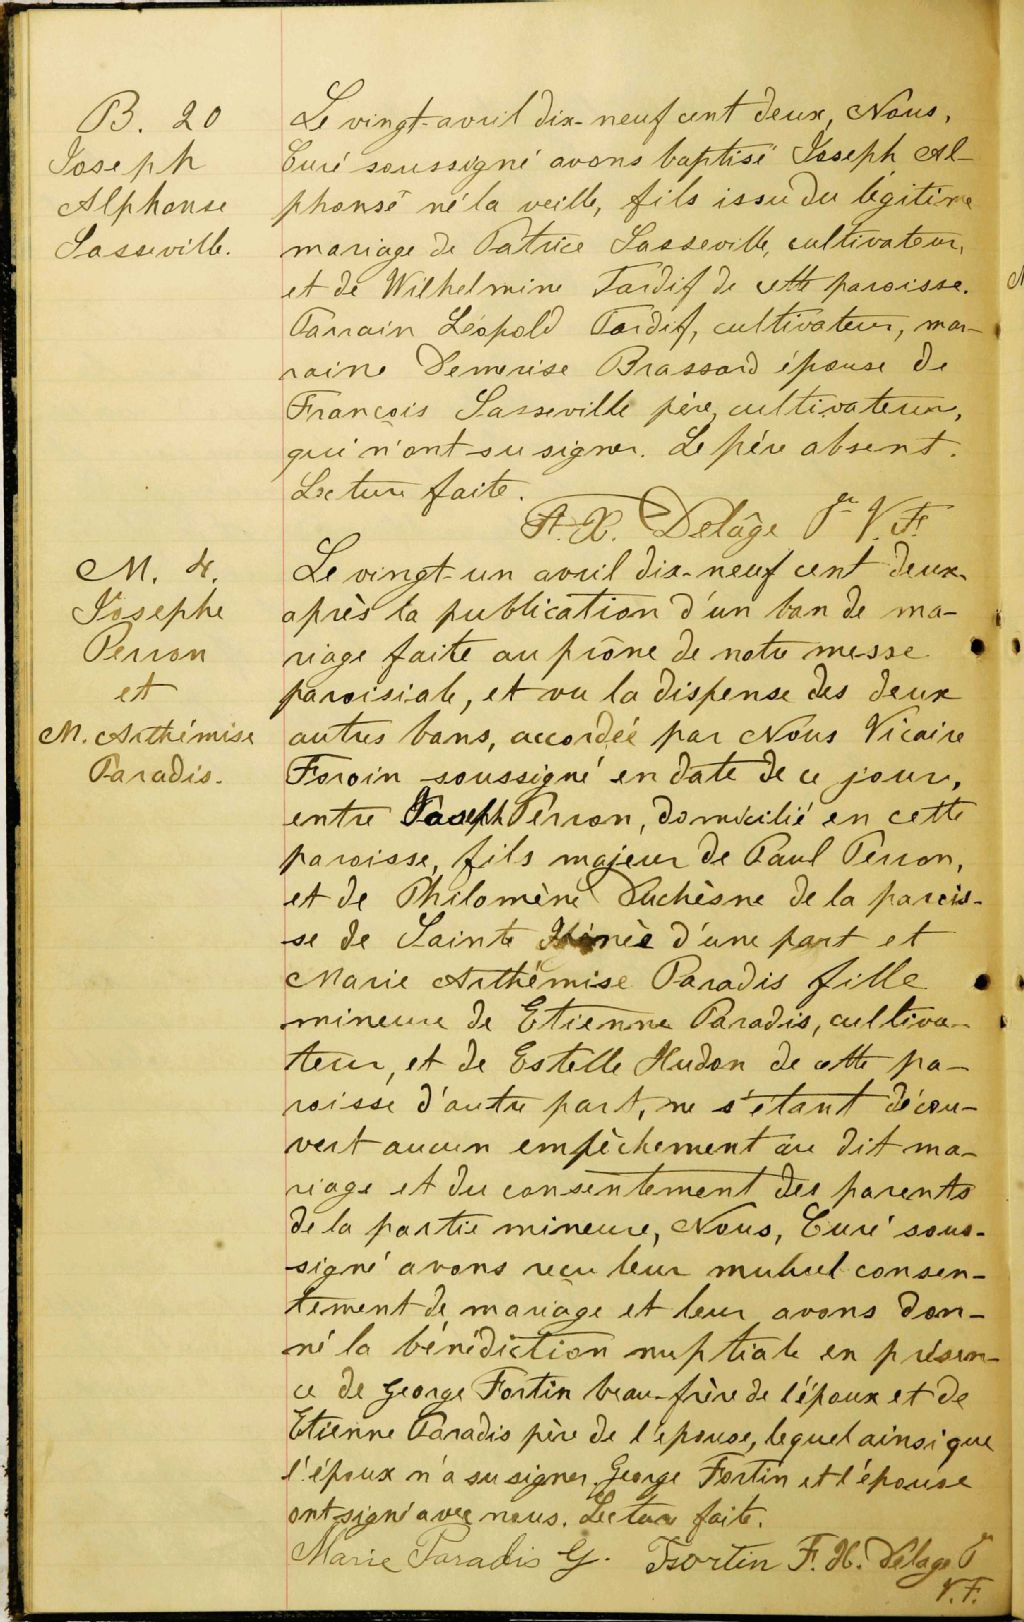 B. 20
Joseph
Alphonse
Lasseville.
Le vingt-avril dix-neuf cent deux, Nous,
Curé soussigné avons baptisé Joseph Al-
phonse né la veille, fils issu du légitime
mariage de Patrice Lasseville, cultivateur,
et de Wilhelmine Tardif de cette paroisse.
Parrain Léopold Tardif, cultivateur, mar-
raine Demerise Brassard épouse de
François Lasseville père, cultivateur,
qui n'ont su signer. Le père absent.
Lecture faite.
F. X. Delâge Ptr V. F.
M. 4.
Josephe
Perron
et
M. Arthémise
Paradis.
Le vingt-un avril dix-neuf cent deux
après la publication d'un ban de ma-
riage faite au prône de notre messe
paroisiale, et vu la dispense des deux
autres bans, accordée par Nous Vicaire
Foroin soussigné en date de ce jour,
entre Joseph Perron, domicilié en cette
paroisse, fils majeur de Paul Perron,
et de Philomène Duchèsne de la parois-
se de Sainte d'une part et
Marie Arthémise Paradis fille
mineure de Etienne Paradis, cultiva-
teur, et de Estelle Hudon de cette pa-
roisse d'autre part, ne s'étant décou-
vert aucun empêchement au dit ma-
riage et du consentement des parents
de la partie mineure, Nous, Curé sous-
signé avons reçu leur mutuel consen-
tement de mariage et leur avons don-
né la bénédiction nuptiale en présen-
ce de George Fortin beau-frère de l'époux et de
Etienne Paradis père de l'épouse, lequel ainsi que
l'époux n'a su signer, George Fortin et l'épouse
ont signé avec nous. Lecture faite.
Marie Paradis G. Fortin F. X. Delage P
V. F.